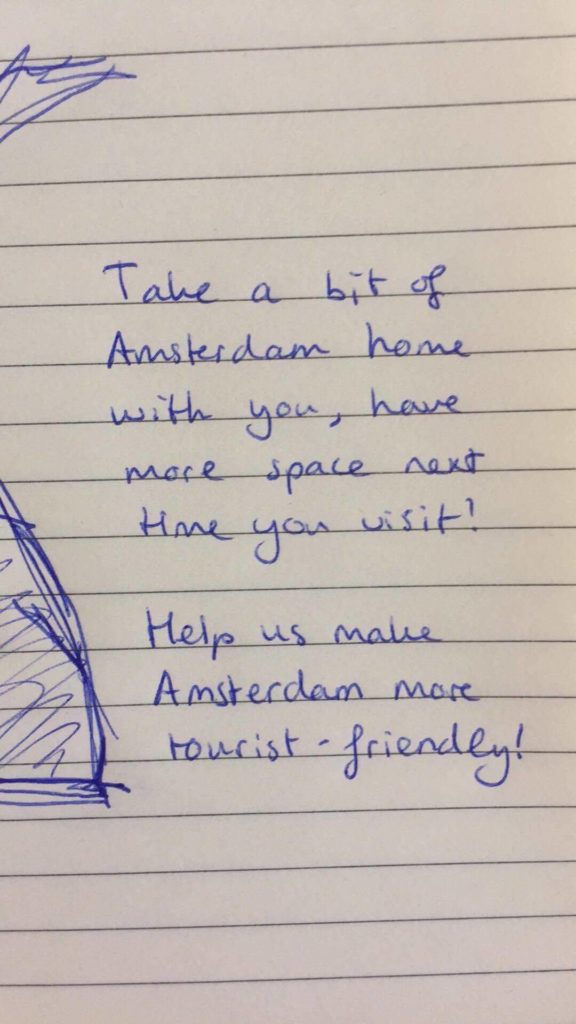 Take a bit of
Amsterdam home
with you, have
more space next
time you visit!
Help us make
Amsterdam more
tourist-friendly!